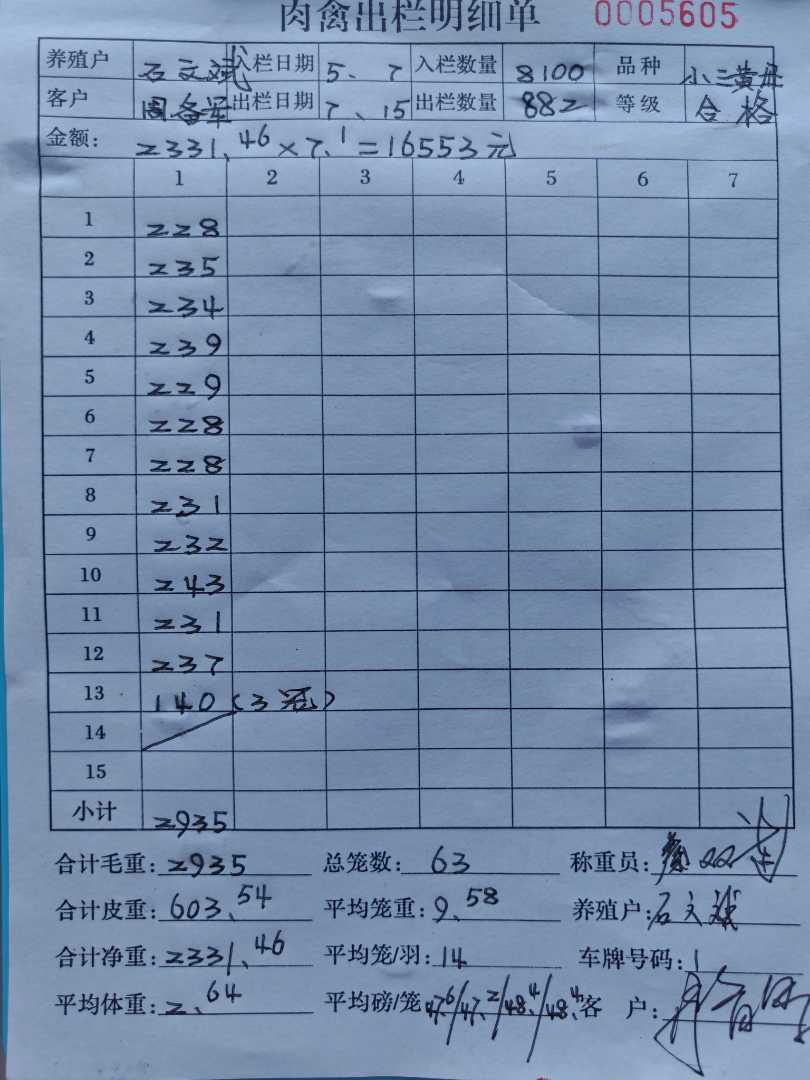 肉禽出栏明细单 0005605
养殖户 石文斌 入栏日期 5、7 入栏数量 8100 品种 小三黄母
客户 出栏日期 7、15 出栏数量 882 等级 合格
金额: 2331.46×7.1=16553元
1 2 3 4 5 6 7
1 228
2 235
3 234
4 239
5 229
6 228
7 228
8 231
9 232
10 243
11 231
12 237
13 140(3冠)
14
15
小计 2935
合计毛重: 2935 总笼数: 63 称重员:
合计皮重: 603.54 平均笼重: 9.58 养殖户: 石文斌
合计净重: 2331.46 平均笼/羽: 14 车牌号码:
平均体重: 2.64 平均磅/笼 47.6/47.2/48.4/48.4 客户: